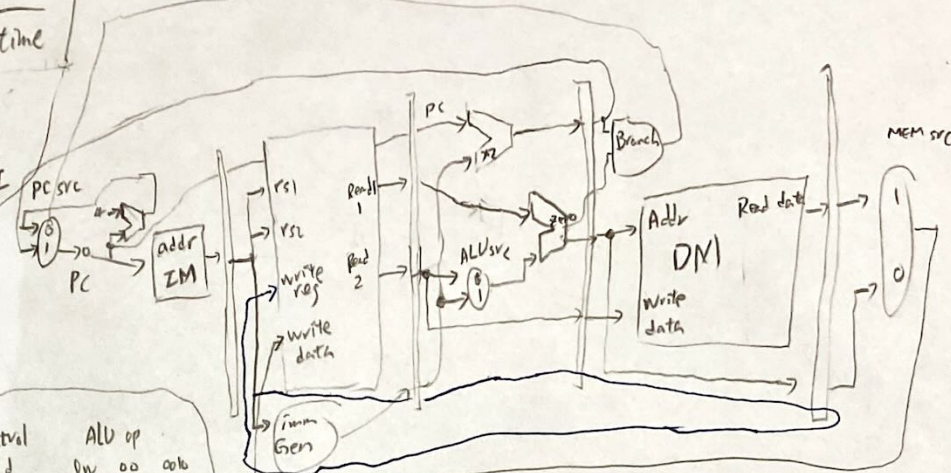 time
PC src
0
1
PC
addr
IM
rs1
rs2
write
reg
write
data
Read1
1
Read
2
imm
Gen
PC
ALUsrc
0
1
zero
Branch
Addr
Read data
DM
Write
data
MEM src
1
0
ALU op